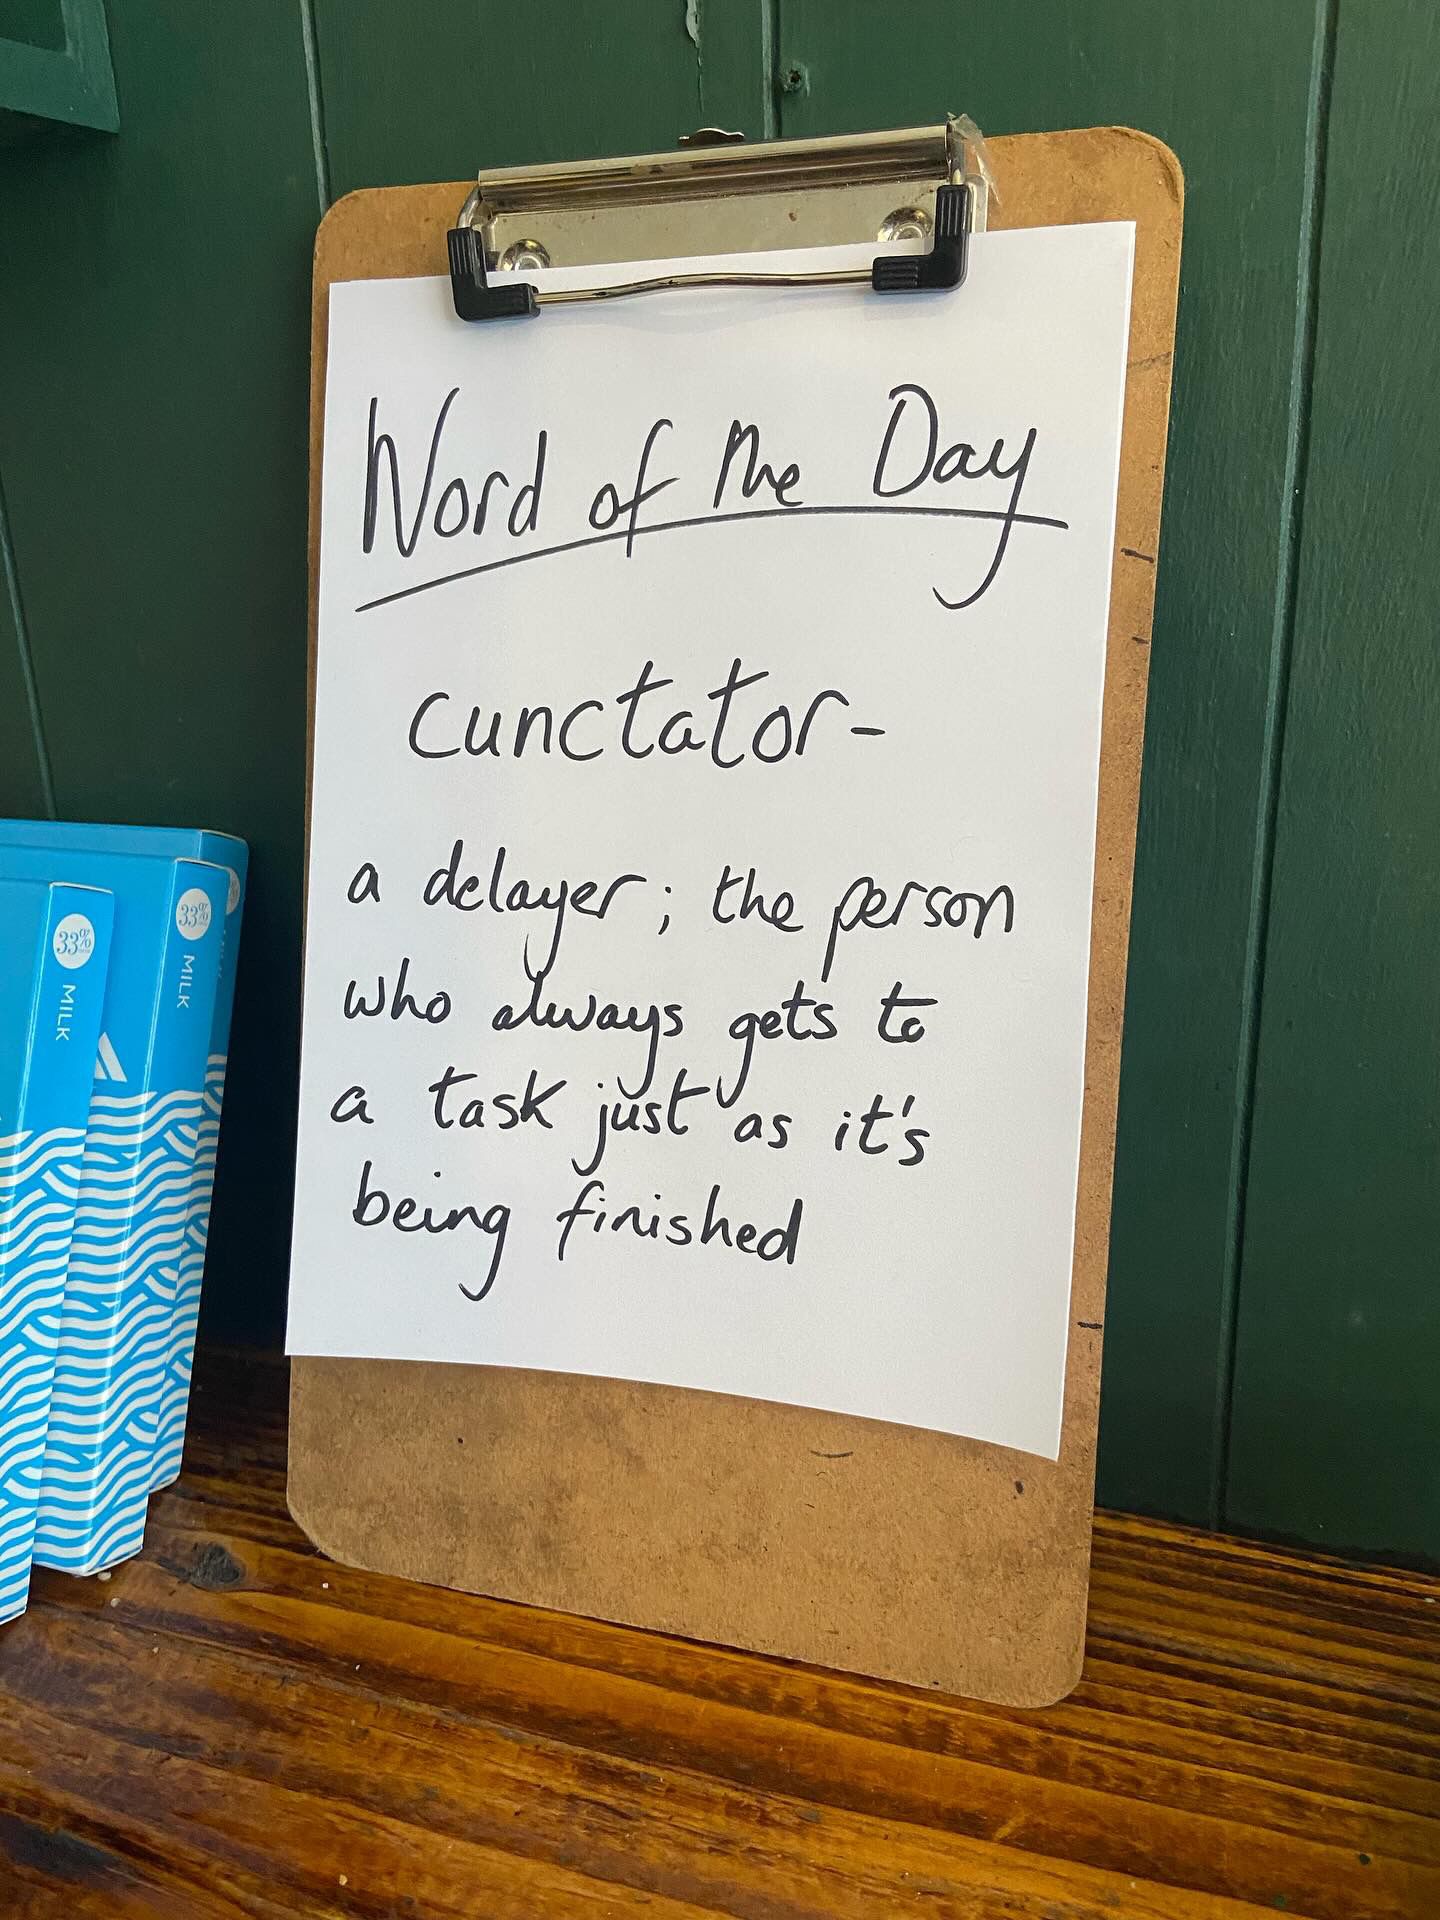 Word of the Day
cunctator-
a delayer; the person
who always gets to
a task just as it's
being finished
33%
MILK
33%
MILK